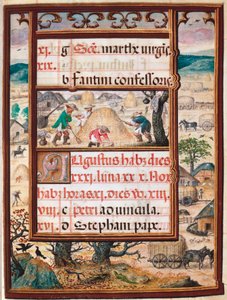 xi. g Scē. marthe virgīe
b Fantini confessoris
Augustus habz dies
xxxi. luna xxx. Nox
habz horas xi. dies vo. xiii.
xviii. c petri ad vincula.
xvii. d Stephani pape.